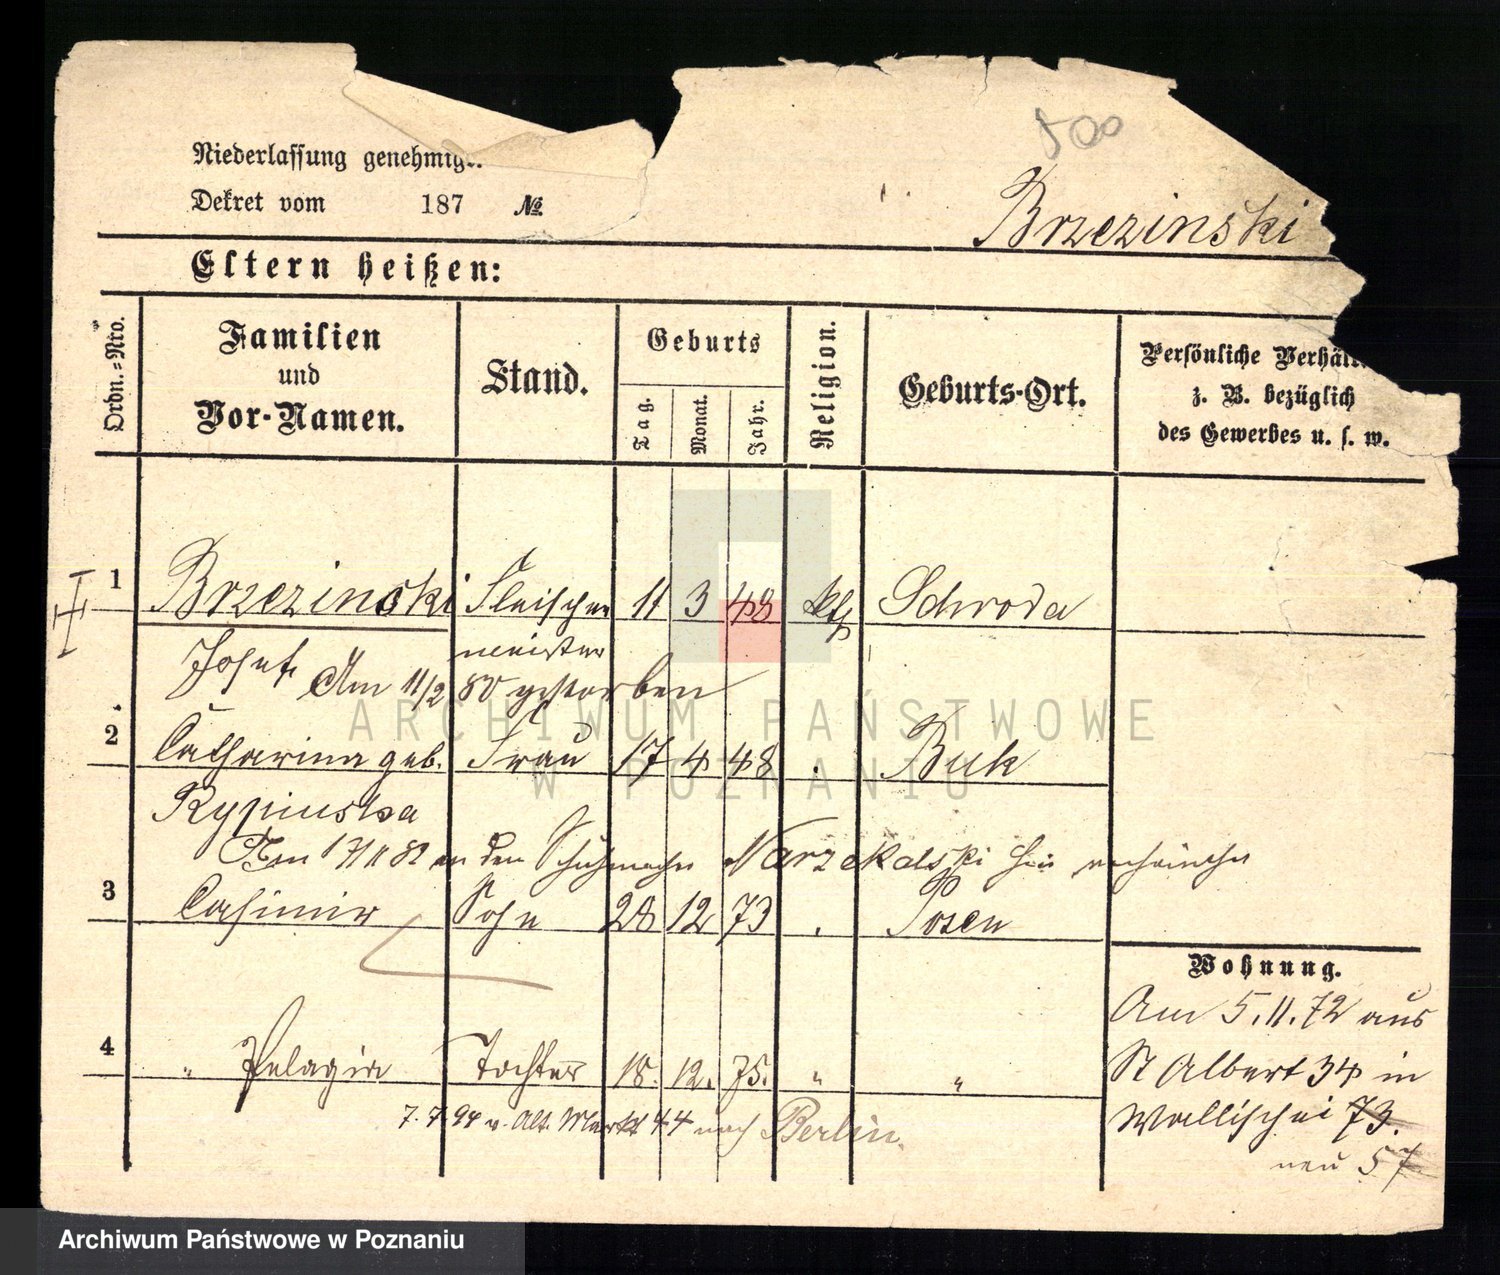 500
Niederlassung genehmigt
Dekret vom 187 №
Brzezinski
Eltern heißen:
Ordn.-Nro.
Familien und Vor-Namen.
Stand.
Geburts
Tag.
Monat.
Jahr.
Religion.
Geburts-Ort.
Persönliche Verhäl
z. B. bezüglich
des Gewerbes u. s. w.
1 Brzezinski Fleischer 11 3 48 kth Schroda
meister
Josef. Am 11/2 80 gestorben
2 Catharina geb. Frau 17 4 48 . Buk
Rypinska
Am 17/11 82 an den Schuhmacher
3 Casimir Sohn 28 12 73 . Posen
Wohnung.
Am 5.11.72 aus
St Albert 34 in
Wallischei 73.
neu 57
4 " Pelagia Tochter 18. 12. 75. " "
7.7.94 v. Alt. Markt 44 nach Berlin.
ARCHIWUM PAŃSTWOWE
W POZNANIU
Archiwum Państwowe w Poznaniu